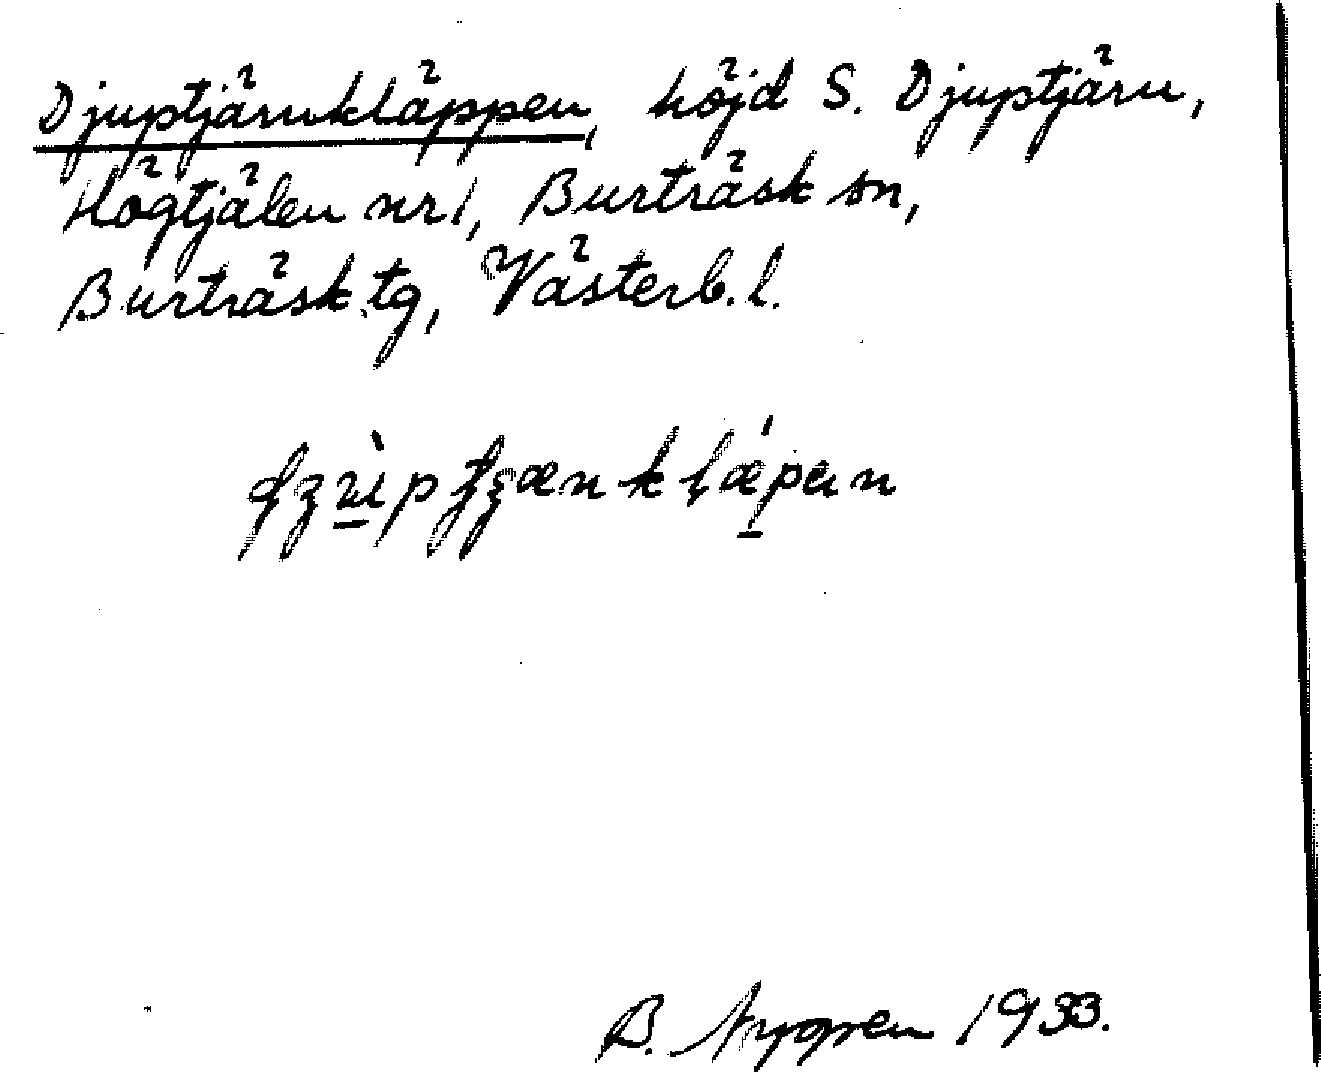 Djuptjärnkläppen, höjd S. Djuptjärn,
Högtjälen nr 1, Burträsk sn,
Burträsk tg, Västerb. l.
B. Nygren 1933.